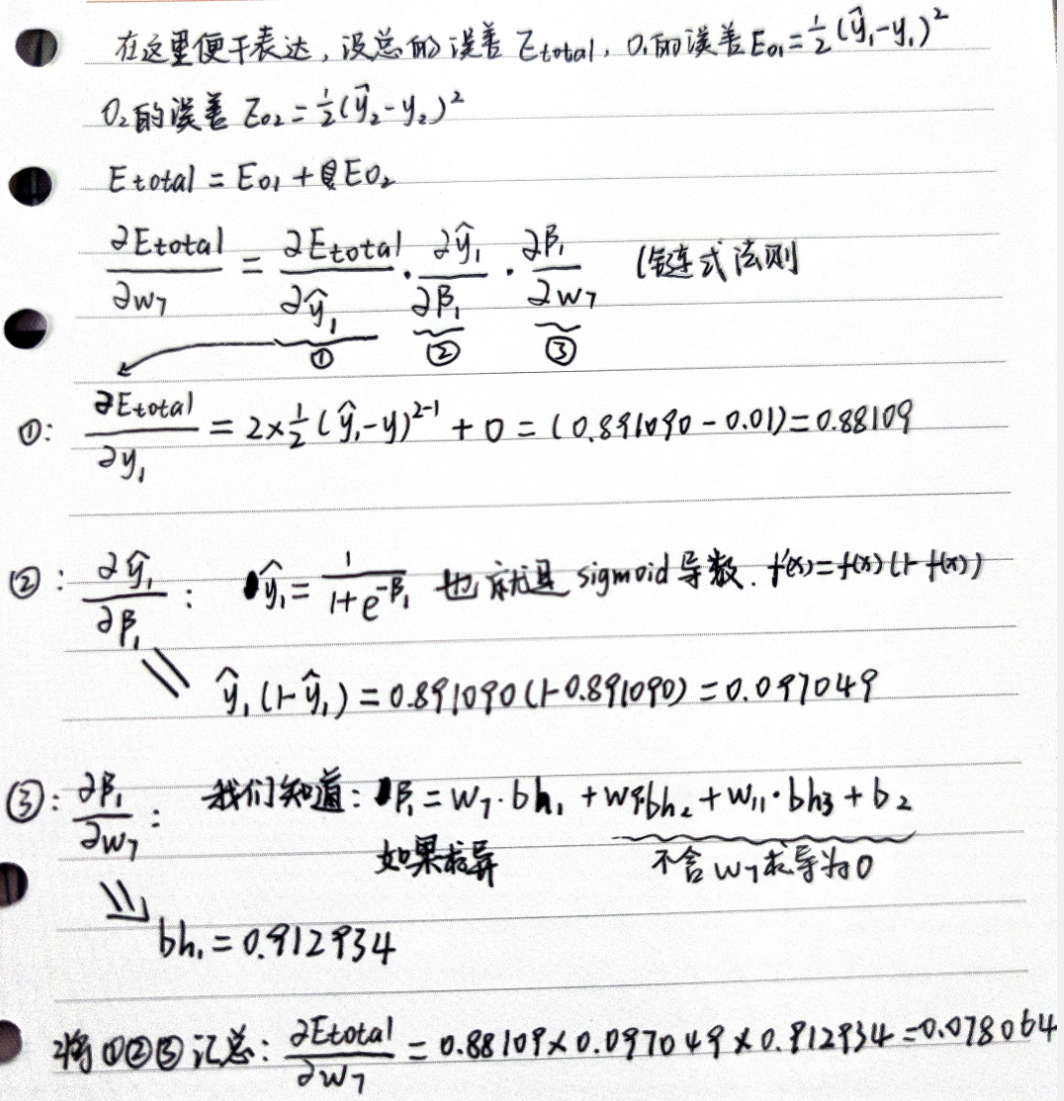 在这里便于表达,设总的误差 Etotal, O₁的误差 E₀₁ = ½(ŷ₁-y₁)²
O₂的误差 E₀₂ = ½(ŷ₂-y₂)²
Etotal = E₀₁ + E₀₂
∂Etotal/∂w₇ = ∂Etotal/∂ŷ₁ · ∂ŷ₁/∂β₁ · ∂β₁/∂w₇ (链式法则
① ② ③
①: ∂Etotal/∂y₁ = 2×½(ŷ₁-y)²⁻¹ + 0 = (0.891090 - 0.01) = 0.88109
②: ∂ŷ₁/∂β₁ : ŷ₁ = 1/(1+e^-β₁) 也就是 sigmoid 导数. f'(x) = f(x)(1-f(x))
ŷ₁(1-ŷ₁) = 0.891090(1-0.891090) = 0.097049
③: ∂β₁/∂w₇ : 我们知道: β₁ = w₇·bh₁ + w₉·bh₂ + w₁₁·bh₃ + b₂
如果求导 不含w₇求导为0
bh₁ = 0.912934
将①②③汇总: ∂Etotal/∂w₇ = 0.88109×0.097049×0.912934 = 0.078064